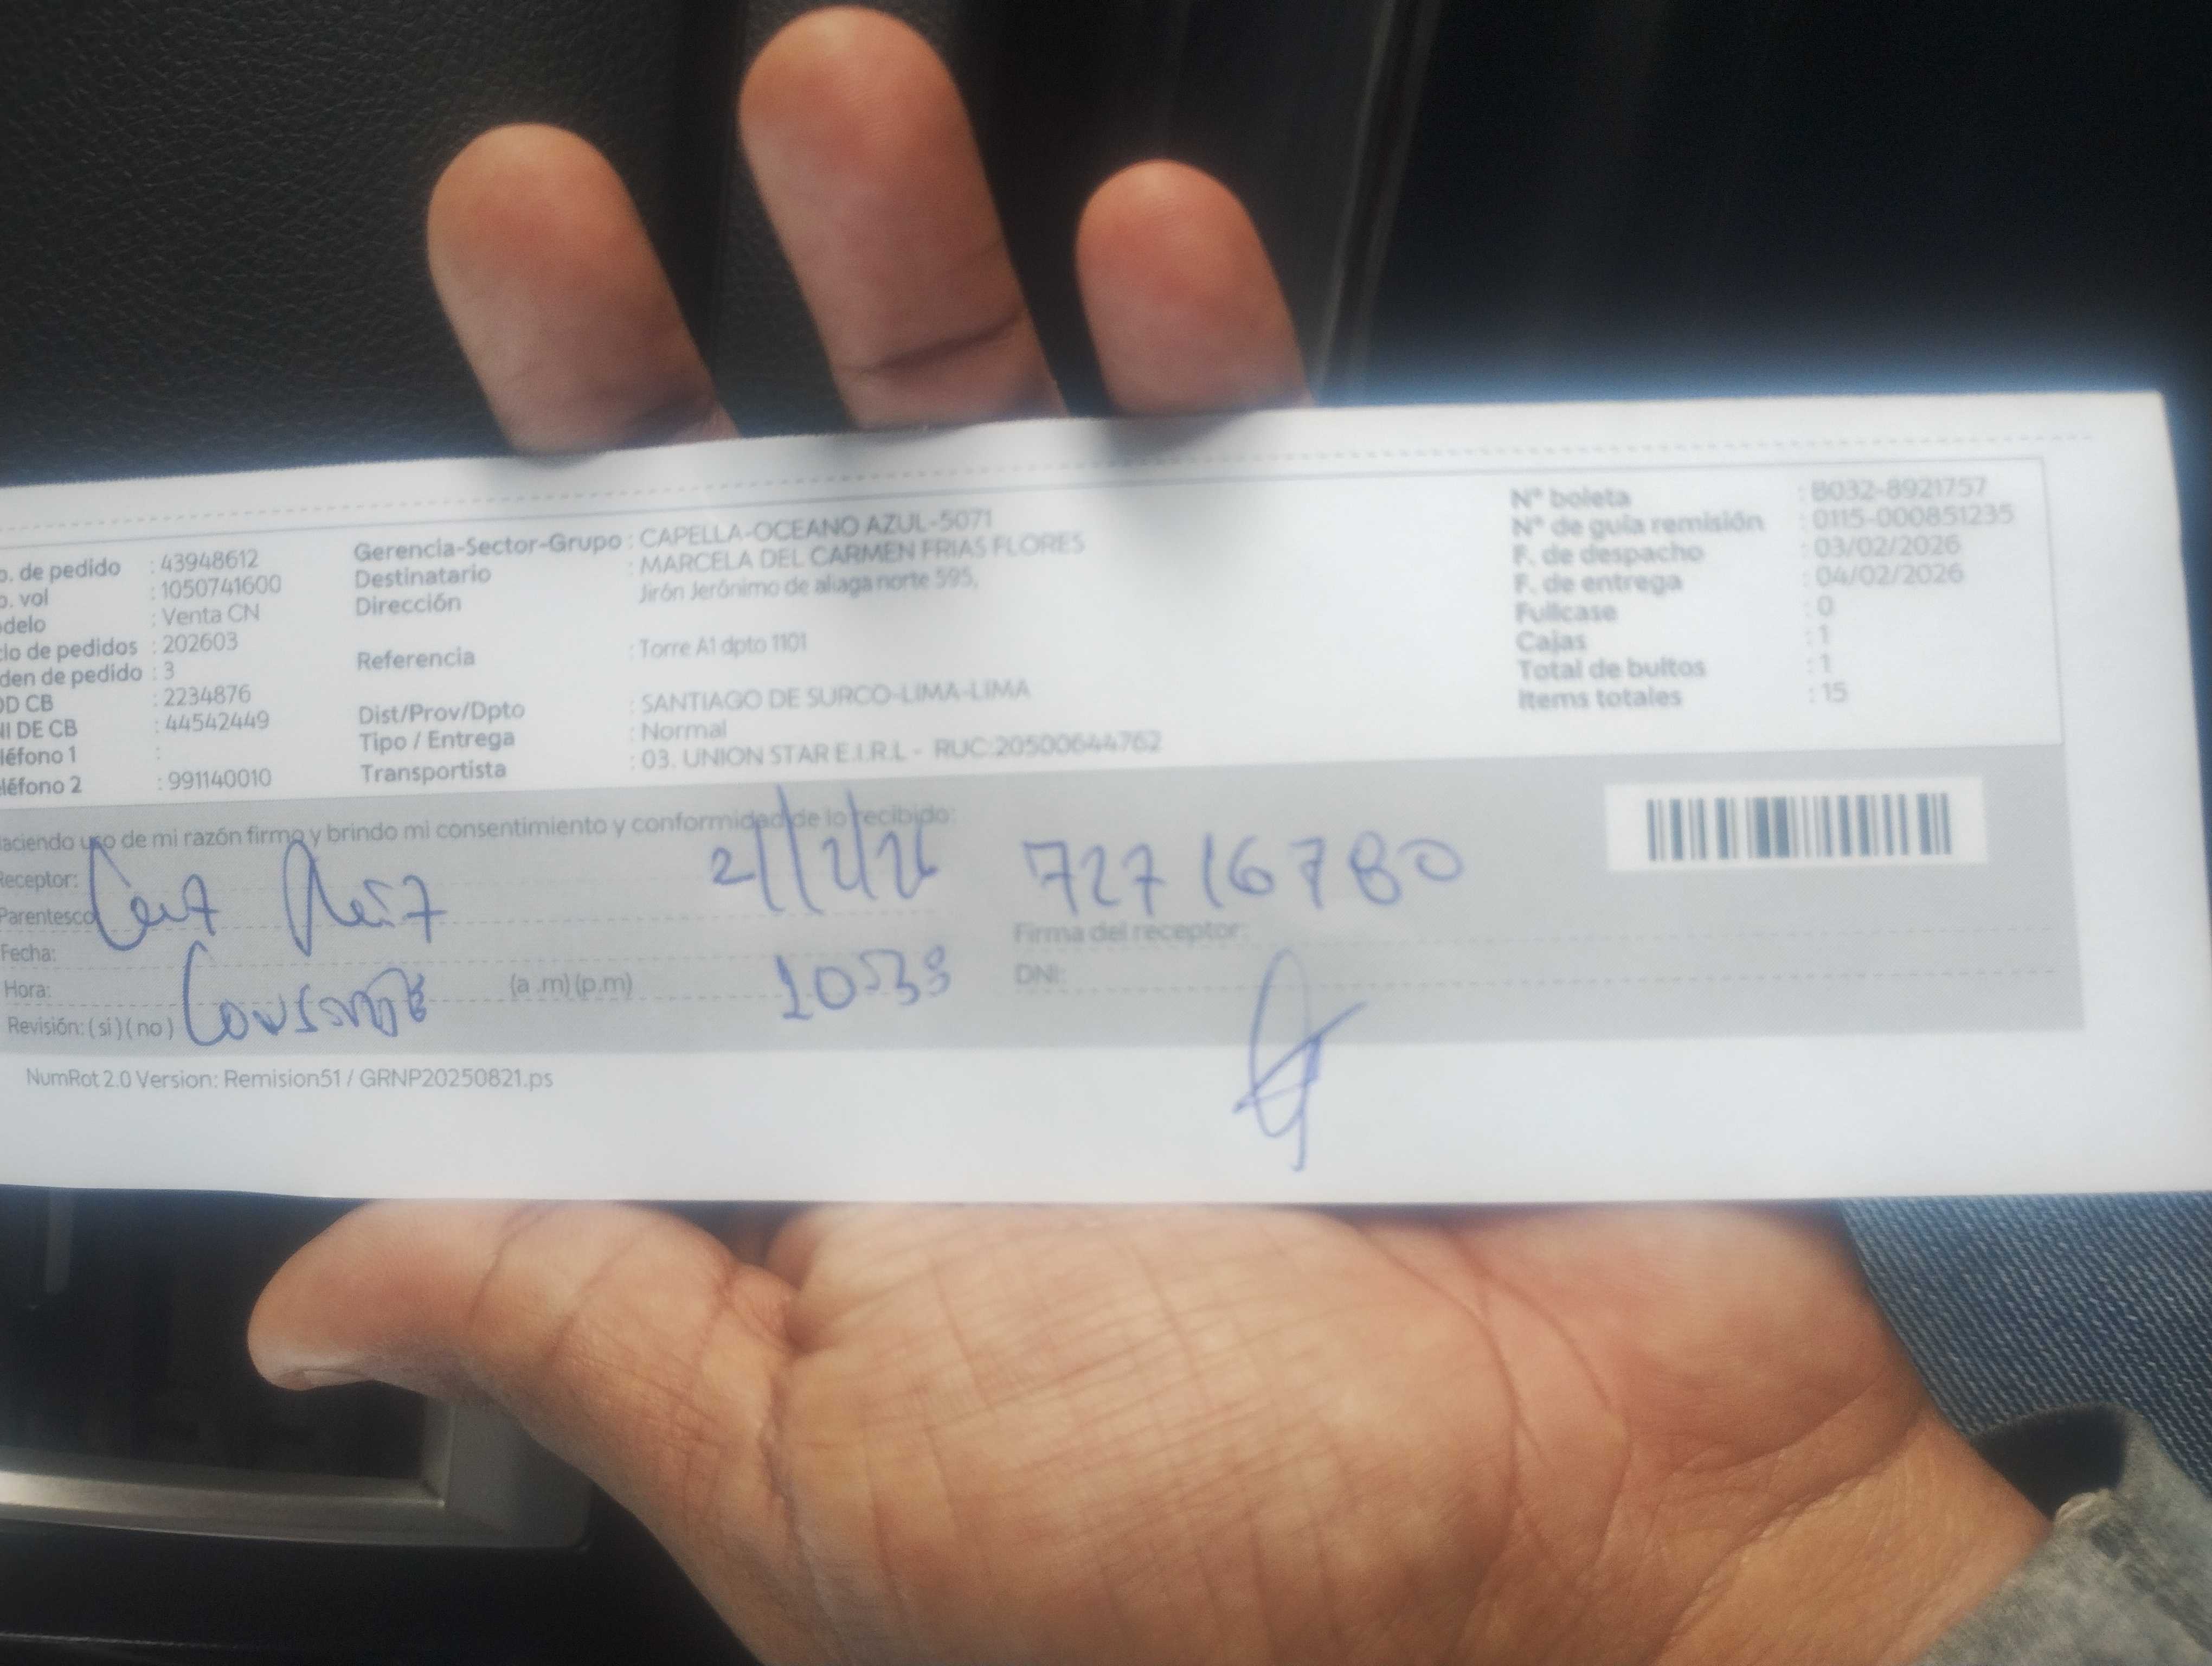 o. de pedido : 43948612
o. vol : 1050741600
delo : Venta CN
lo de pedidos : 202603
den de pedido : 3
OD CB : 2234876
NI DE CB : 44542449
léfono 1 :
léfono 2 : 991140010
Gerencia-Sector-Grupo : CAPELLA-OCEANO AZUL-5071
Destinatario : MARCELA DEL CARMEN FRIAS FLORES
Dirección : Jirón Jerónimo de aliaga norte 595,
Referencia : Torre A1 dpto 1101
Dist/Prov/Dpto : SANTIAGO DE SURCO-LIMA-LIMA
Tipo / Entrega : Normal
Transportista : 03. UNION STAR E.I.R.L - RUC:20500644762
N° boleta : B032-8921757
N° de guía remisión : 0115-000851235
F. de despacho : 03/02/2026
F. de entrega : 04/02/2026
Fullcase : 0
Cajas : 1
Total de bultos : 1
Items totales : 15
aciendo uso de mi razón firmo y brindo mi consentimiento y conformidad de lo recibido:
Receptor:
Parentesco
72716780
Firma del receptor:
Fecha:
Hora: (a .m) (p.m)
DNI:
Revisión: ( si ) ( no )
NumRot 2.0 Version: Remision51 / GRNP20250821.ps